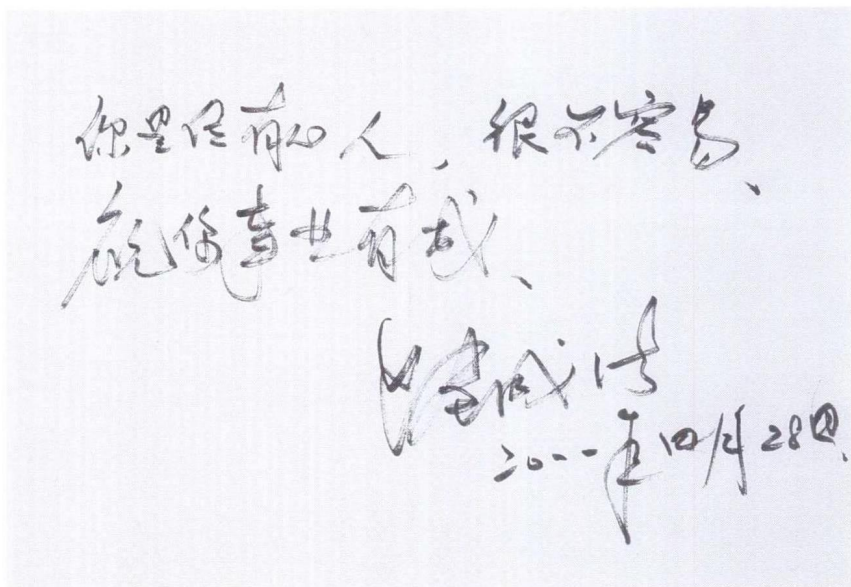 你是个有心人，很不容易、
祝你事业有成、
二〇一一年四月28日.